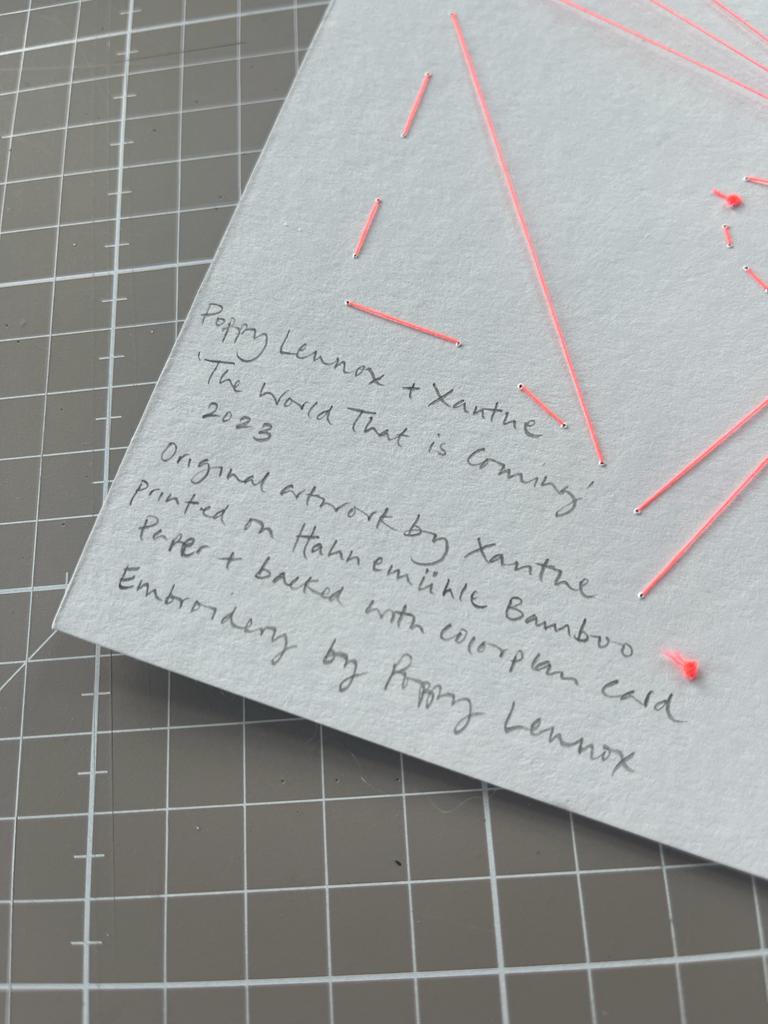 Poppy Lennox + Xanthe
'The World That is Coming'
2023
Original artwork by Xanthe
printed on Hahnemühle Bamboo
Paper + backed with colorplan card
Embroidery by Poppy Lennox